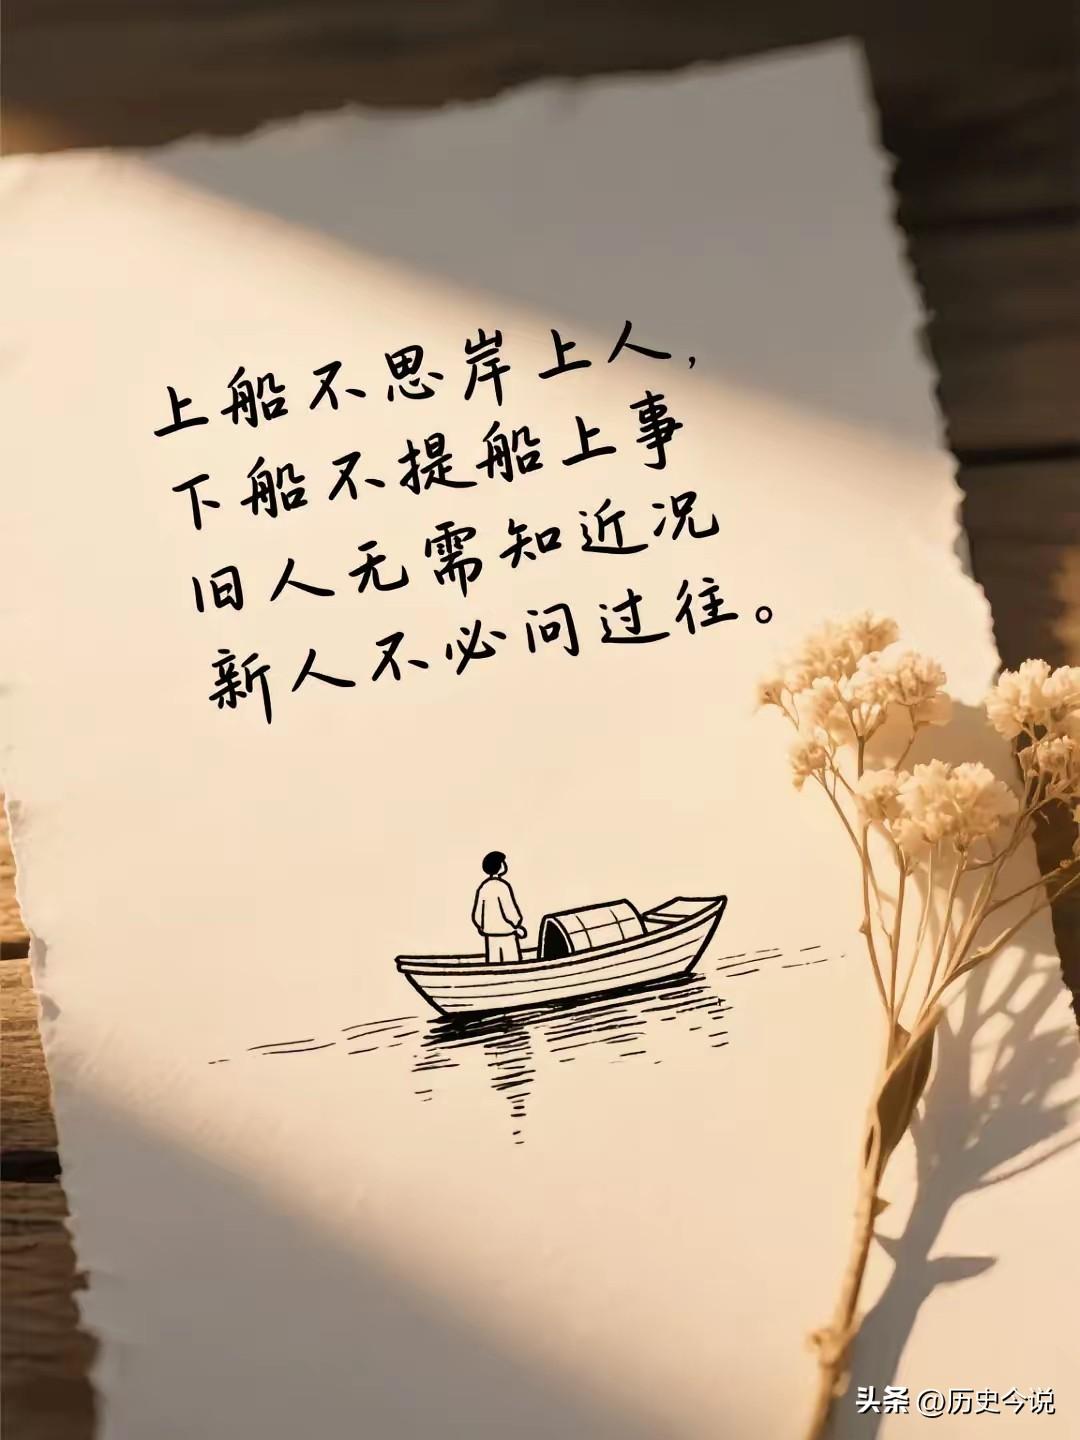 上船不思岸上人,
下船不提船上事
旧人无需知近况
新人不必问过往。
头条 @历史今说